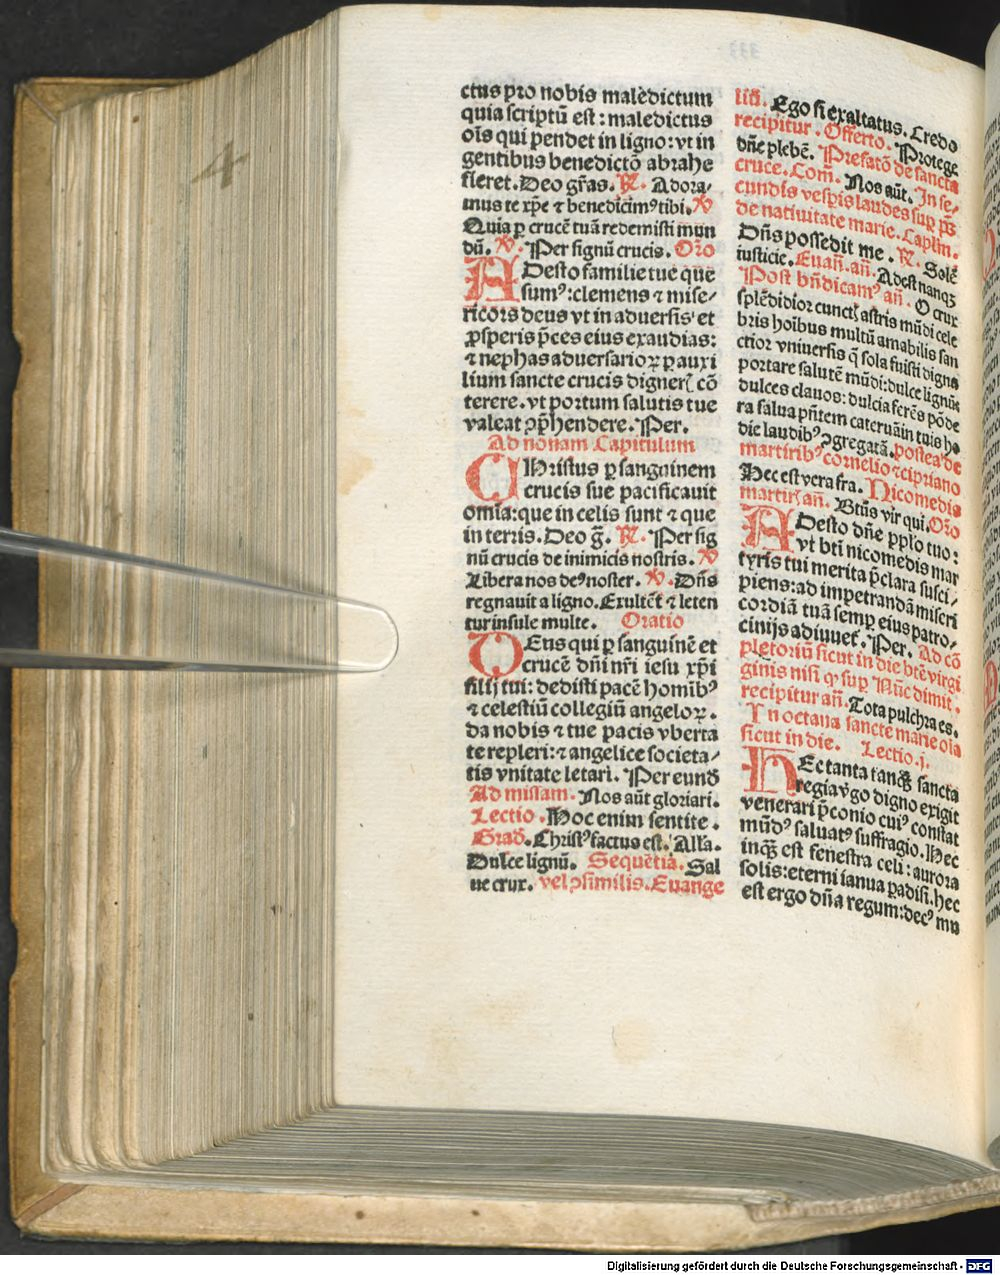 ctus pro nobis maledictum
quia scriptū est : maledictus
oīs qui pendet in ligno: vt in
gentibus benedictō abrahe
fieret. Deo gr̄as. ℟. Adora⸗
mus te xp̄e ⁊ benedicimꝰ tibi. ℣
Quia ꝑ crucē tuā redemisti mun
dū. ℣. Per signū crucis. Orō
ADesto familie tue que
sumꝰ: clemens ⁊ mise⸗
ricors deus vt in aduersis et
ꝓsperis p̄ces eius exaudias:
⁊ nephas aduersarioꝝ ꝑ auxi
lium sancte crucis digneris cō
terere. vt portum salutis tue
valeat ꝓp̄hendere. Per.
Ad nonam Capitulum
CHristus ꝑ sanguinem
crucis sue pacificauit
omīa: que in celis sunt ⁊ que
in terris. Deo g̅. ℟. Per sig
nū crucis de inimicis nostris. ℣
Libera nos deꝰ noster. ℣. Dn̄s
regnauit a ligno. Exultēt ⁊ leten
tur insule multe. Oratio
DEus qui ꝑ sanguinē et
crucē dn̄i nr̄i iesu xp̄i
filij tui: dedisti pacē homībꝰ
⁊ celestiū collegiū angeloꝝ.
da nobis ⁊ tue pacis vberta
te repleri: ⁊ angelice societa⸗
tis vnitate letari. Per eund̄
Ad missam. Nos aūt gloriari.
Lectio. Hoc enim sentite.
Grad̄. Christꝰ factus est. Alla.
Dulce lignū. Sequētia. Sal
ue crux. vel ꝯsimilis. Euange
liū. Ego si exaltatus. Credo
recipitur. Offerto. Protege
dn̄e plebē. Prefatō de sancta
cruce. Com̄. Nos aūt. In se⸗
cundis vesp̄is laudes suꝑ p̄s
de natiuitate marie. Caplm̄.
Dn̄s possedit me. ℟. Solē
iusticie. Euan̄. an̄. Adest nanqꝫ
Post bn̄dicamꝰ an̄. O crux
splēdidior cunctis astris mūdi cele
bris hoībus multū amabilis san
ctior vniuersis q̄ sola fuisti digna
portare salutē mūdi: dulce lignū
dulces clauos: dulcia ferēs pōde
ra salua p̄ntem cateruā in tuis ho
die laudibꝰ ꝯgregatā. postea de
martiribꝰ cornelio ⁊ cipriano
Hec est vera fra. Nicomedis
martiris an̄. Btūs vir qui. Orō
ADesto dn̄e pplo tuo:
vt btī nicomedis mar
tyris tui merita p̄clara susci⸗
piens: ad impetrandā miseri
cordiā tuā semꝑ eius patro⸗
cinijs adiuuet. Per. Ad cō
pletoriū sicut in die btē virgi
ginis nisi ꝙ suꝑ Nūc dimit.
recipitur an̄. Tota pulchra es.
In octaua sancte marie oīa
sicut in die. Lectio .j.
HEc tanta tanqꝫ sancta
regia v̄go digno exigit
venerari p̄conio cuiꝰ constat
mūdꝰ saluatꝰ suffragio. Hec
inqꝫ est fenestra celi: aurora
solis: eterni ianua ꝑadisi. hec
est ergo dn̄a regum: decꝰ mu
4
Digitalisierung gefördert durch die Deutsche Forschungsgemeinschaft - DFG